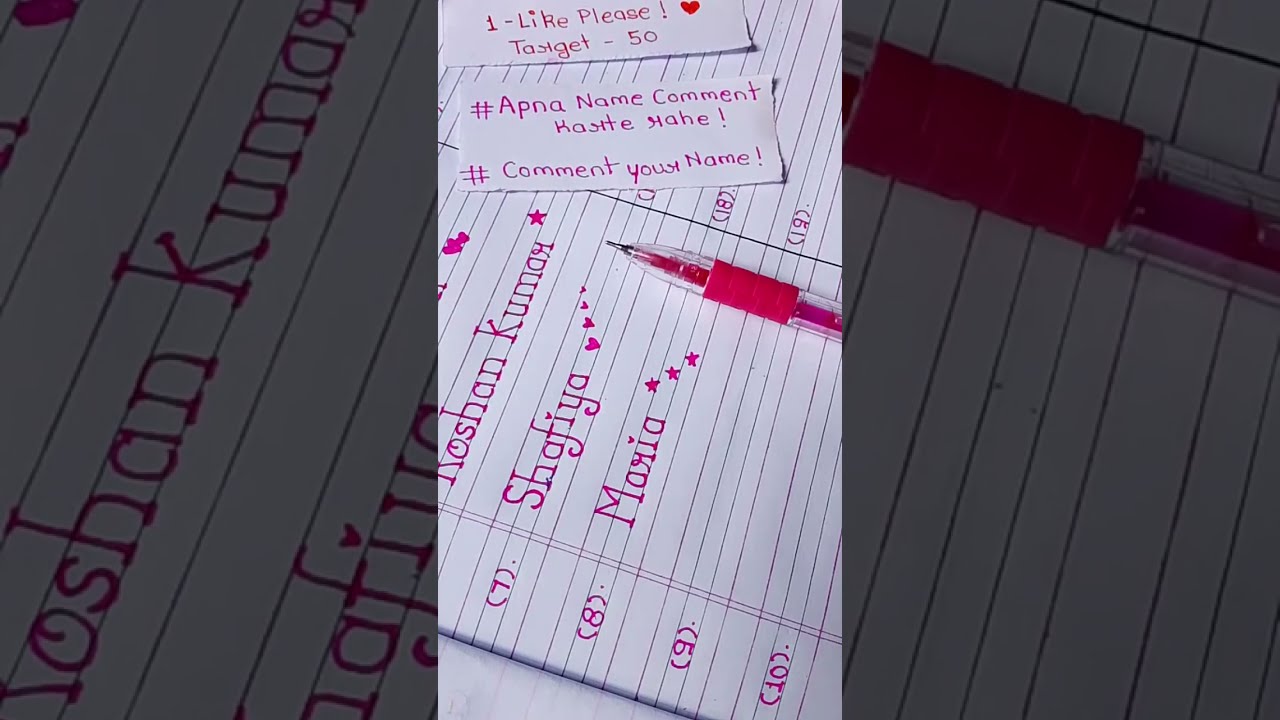 1-Like Please! ❤
Target - 50
#Apna Name Comment
Karte rahe!
# Comment your Name!
Roshan Kumar ★
(7). Shafiya
(8). Maria ★ ★ ★
(9).
(10).
(18).
(19).